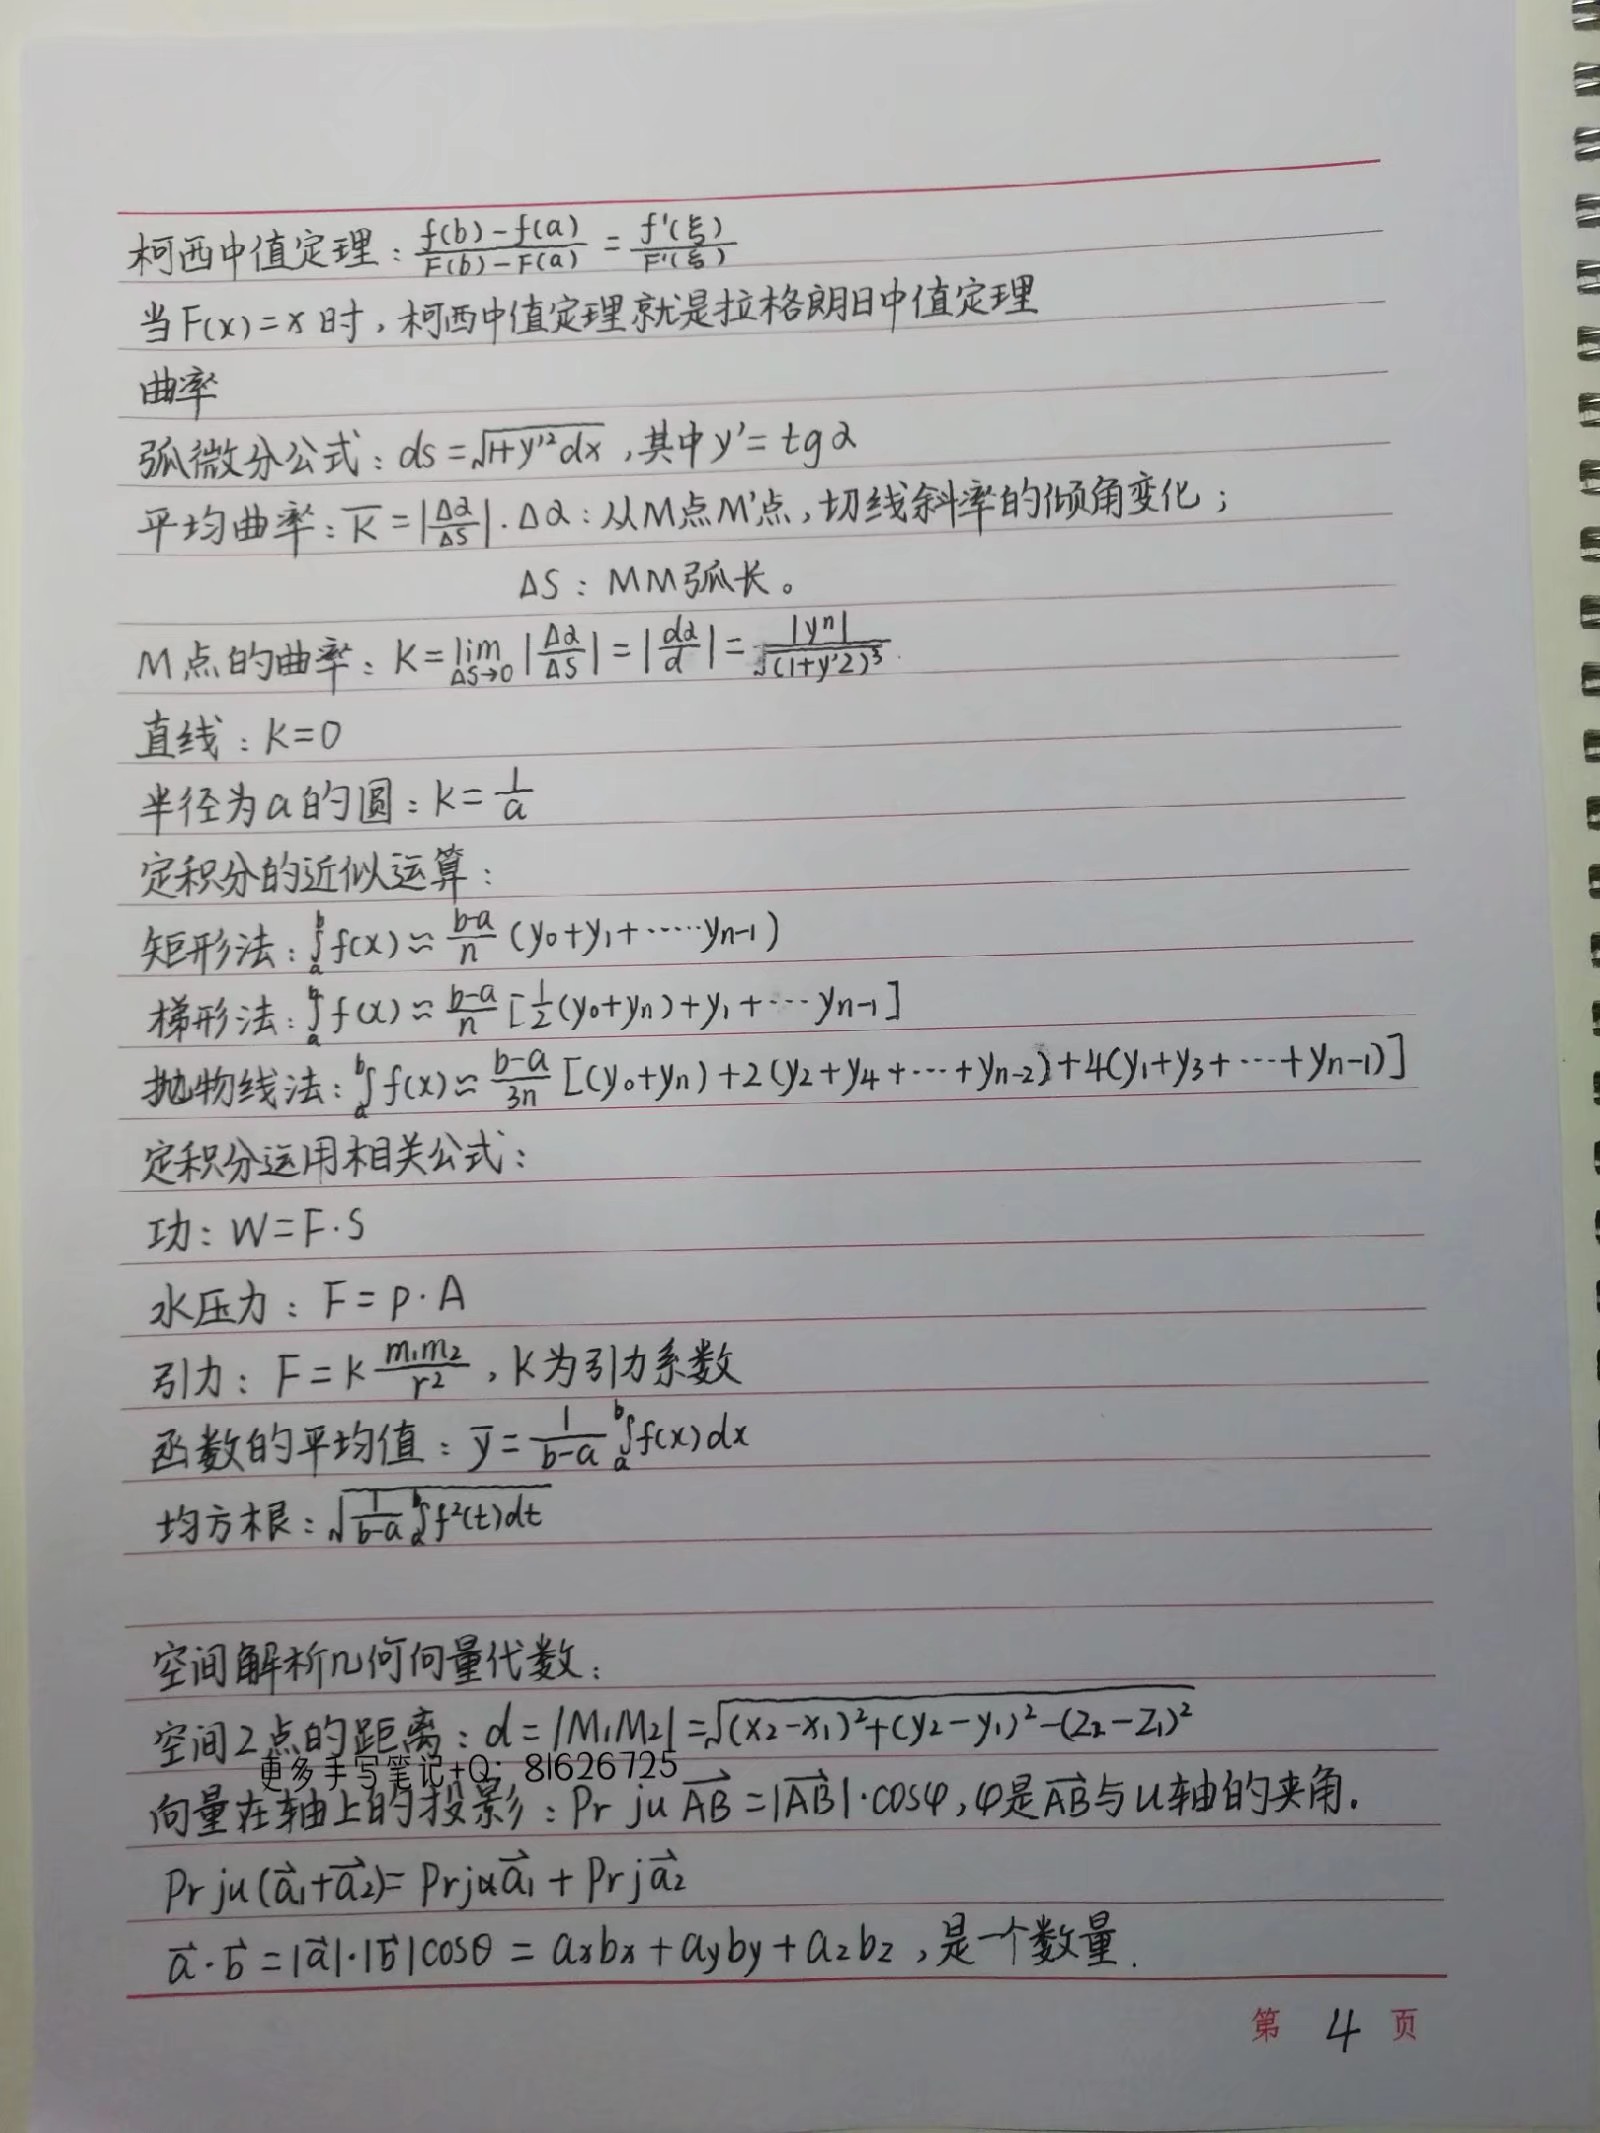 柯西中值定理：\frac{f(b)-f(a)}{F(b)-F(a)} = \frac{f'(ξ)}{F'(ξ)}
当F(x)=x时，柯西中值定理就是拉格朗日中值定理
曲率
弧微分公式：ds=\sqrt{1+y'^2dx}，其中y'=tgα
平均曲率：\overline{K}=|\frac{Δα}{ΔS}|.Δα：从M点M'点，切线斜率的倾角变化；
ΔS：MM弧长。
M点的曲率：K=\lim_{ΔS→0}|\frac{Δα}{ΔS}|=|\frac{dα}{d}|=\frac{|y^n|}{\sqrt{(1+y'2)^3}}.
直线：K=0
半径为a的圆：K=\frac{1}{a}
定积分的近似运算：
矩形法：\int_a^b f(x)≈\frac{b-a}{n}(y_0+y_1+……y_{n-1})
梯形法：\int_a^b f(x)≈\frac{b-a}{n}[\frac{1}{2}(y_0+y_n)+y_1+…y_{n-1}]
抛物线法：\int_a^b f(x)≈\frac{b-a}{3n}[(y_0+y_n)+2(y_2+y_4+…+y_{n-2})+4(y_1+y_3+…+y_{n-1})]
定积分运用相关公式：
功：W=F·S
水压力：F=p·A
引力：F=k\frac{m_1m_2}{r^2}，K为引力系数
函数的平均值：\overline{y}=\frac{1}{b-a}\int_a^b f(x)dx
均方根：\sqrt{\frac{1}{b-a}\int_a^b f^2(t)dt}
空间解析几何向量代数：
空间2点的距离：d=|M_1M_2|=\sqrt{(x_2-x_1)^2+(y_2-y_1)^2-(z_2-z_1)^2}
更多手写笔记+Q：81626725
向量在轴上的投影：Pr ju \overrightarrow{AB}=|\overrightarrow{AB}|·cosφ，φ是\overrightarrow{AB}与u轴的夹角.
Pr ju(\vec{a}_1+\vec{a}_2)=Prju\vec{a}_1+Prj\vec{a}_2
\vec{a}·\vec{b}=|\vec{a}|·|\vec{b}|cosθ=a_xb_x+a_yb_y+a_zb_z，是一个数量.
第 4 页